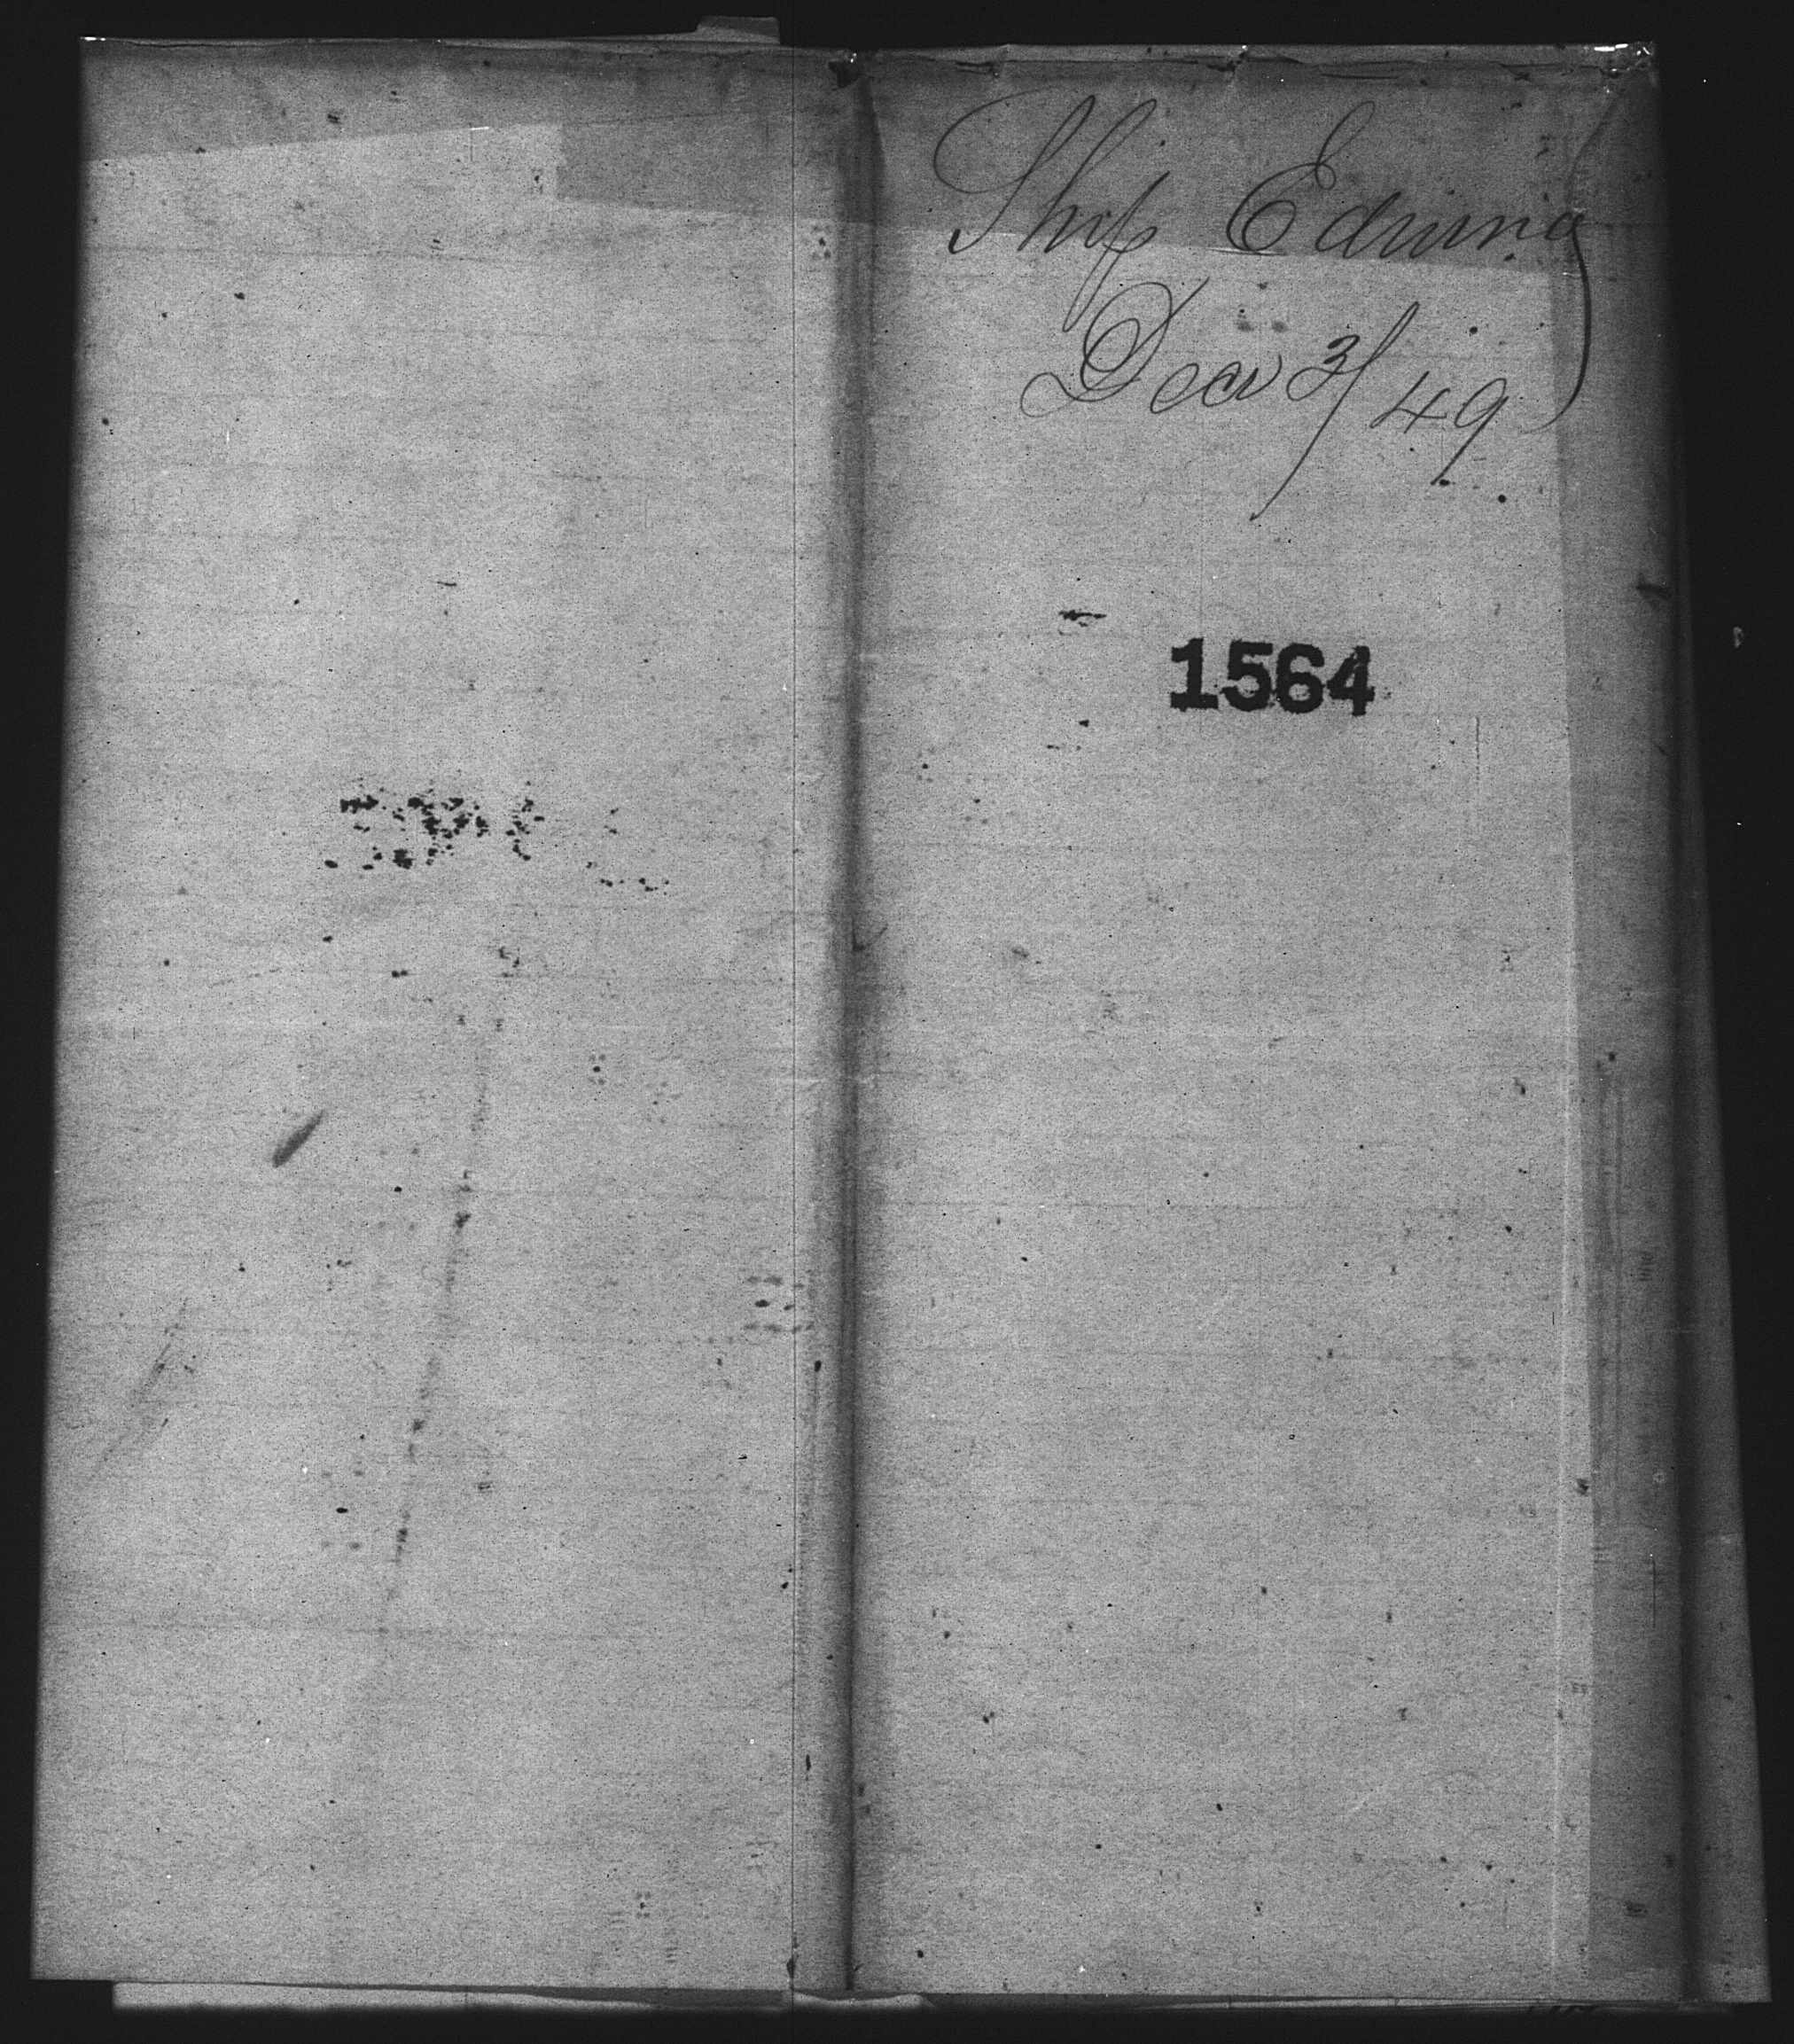 Ship Edwina
Decr 3/49
1564